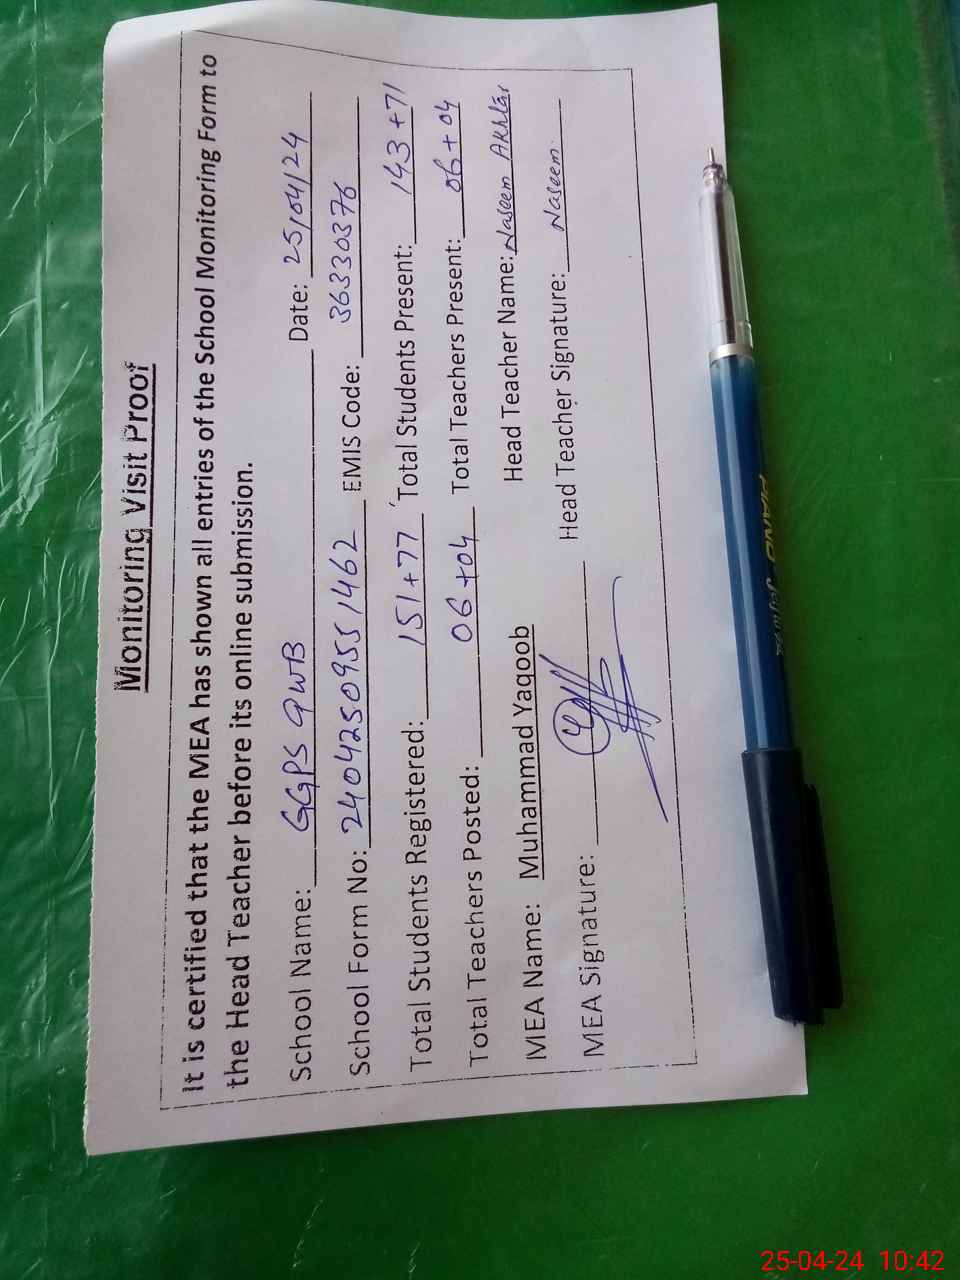 Monitoring Visit Proof
It is certified that the MEA has shown all entries of the School Monitoring Form to
the Head Teacher before its online submission.
School Name: GGPS 9WB Date: 25/04/24
School Form No: 24042509551462 EMIS Code: 36330376
Total Students Registered: 151+77 Total Students Present: 143+71
Total Teachers Posted: 06+04 Total Teachers Present: 06+04
MEA Name: Muhammad Yaqoob Head Teacher Name: Naseem Akhtar
MEA Signature: Head Teacher Signature: Naseem
25-04-24 10:42